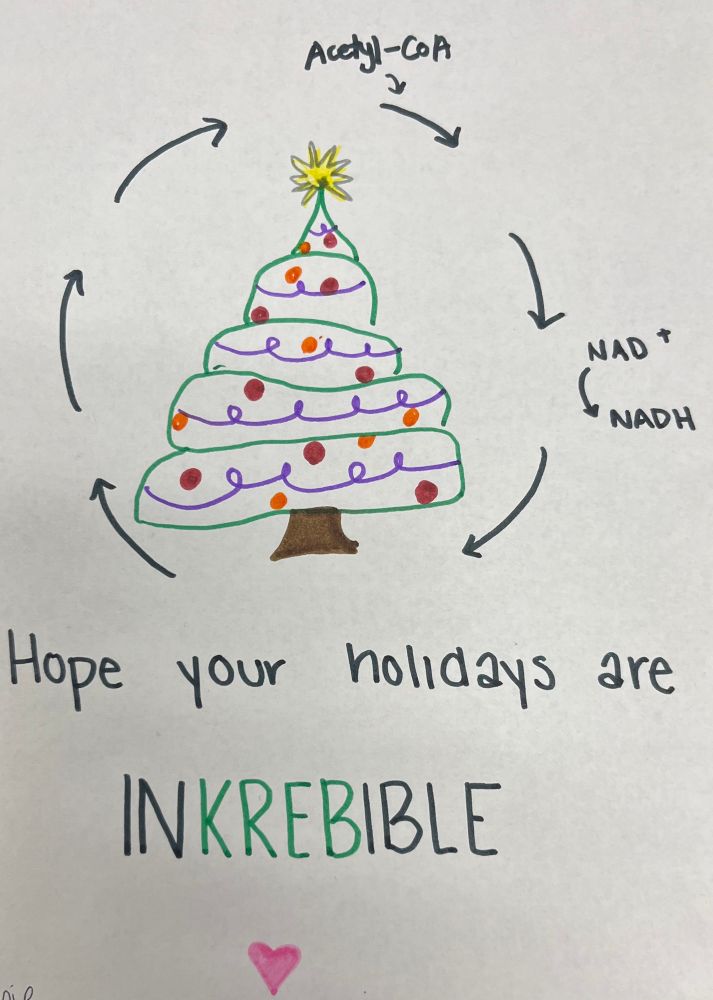 Acetyl-CoA
NAD+
NADH
Hope your holidays are
INKREBIBLE